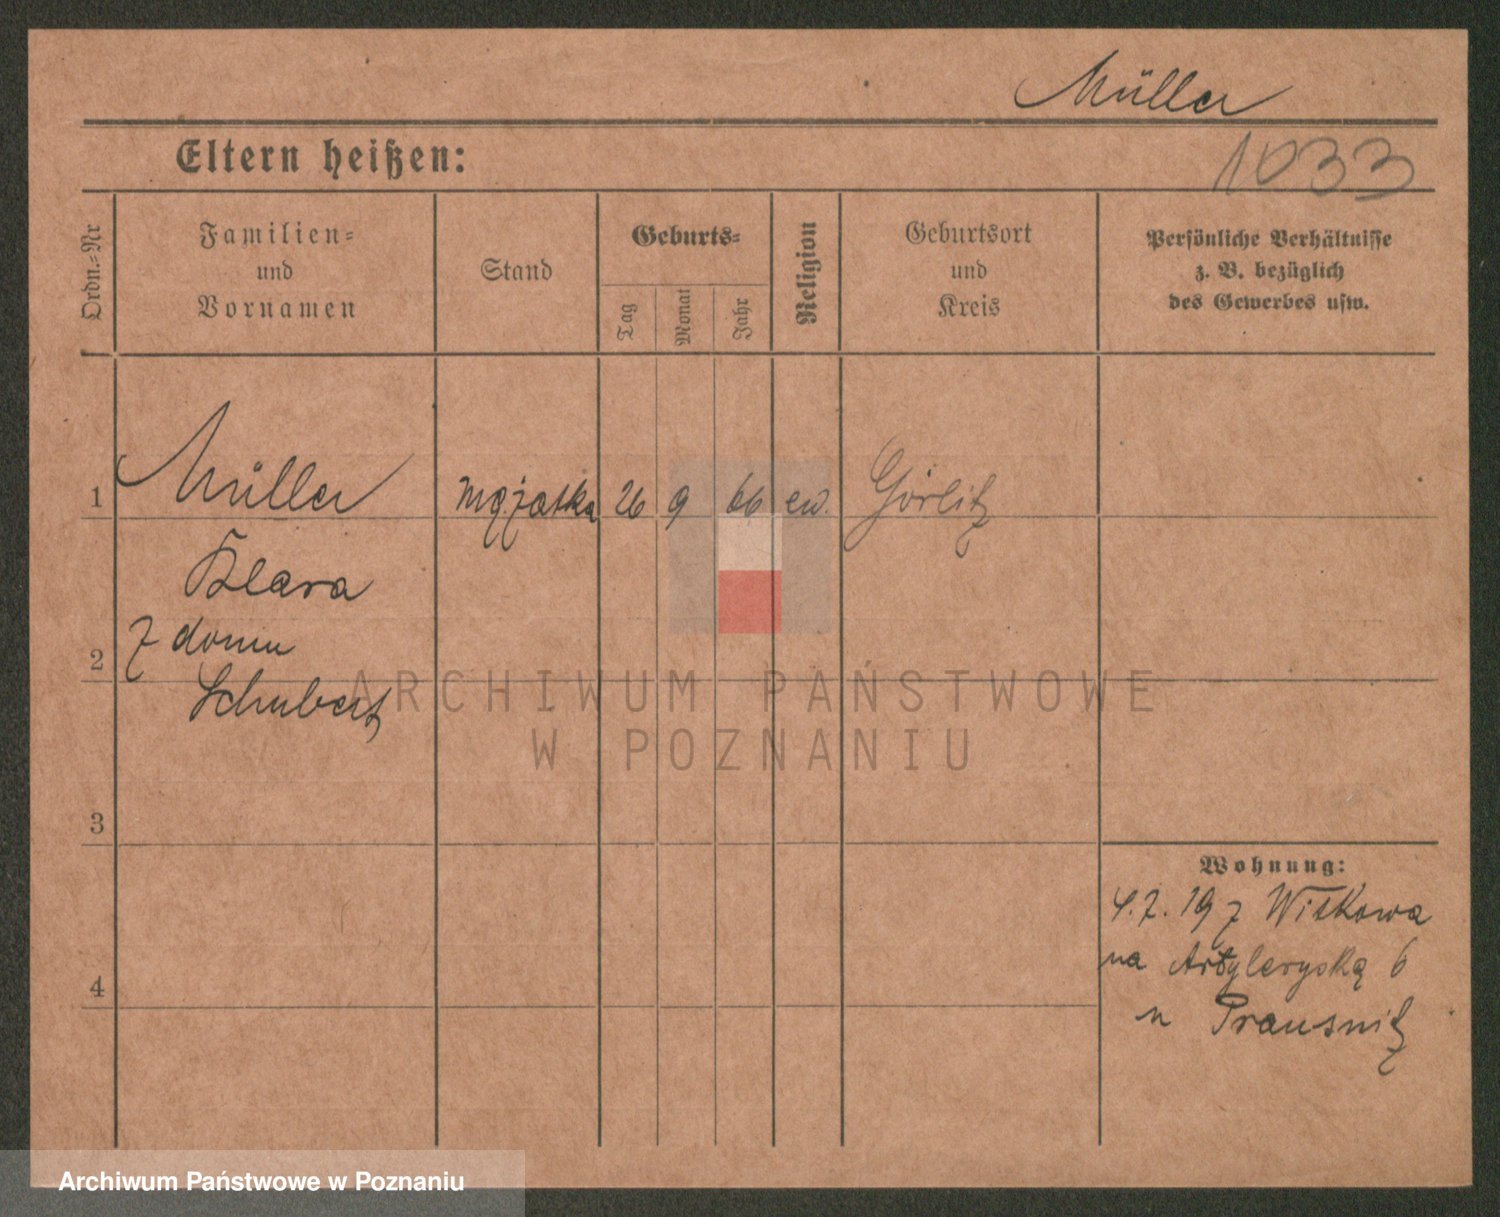 Müller
Eltern heißen:
1033
Ordn.-Nr
Familien-
und
Vornamen
Stand
Geburts-
Tag
Monat
Jahr
Religion
Geburtsort
und
Kreis
Persönliche Verhältnisse
z. B. bezüglich
des Gewerbes usw.
1
Müller
26
9
66
ew.
Görlitz
Klara
z domu
2
Schubert
3
4
Wohnung:
4.7.19 z Witkowa
na Artyleryską 6
u Prausnitz
ARCHIWUM PAŃSTWOWE
W POZNANIU
Archiwum Państwowe w Poznaniu